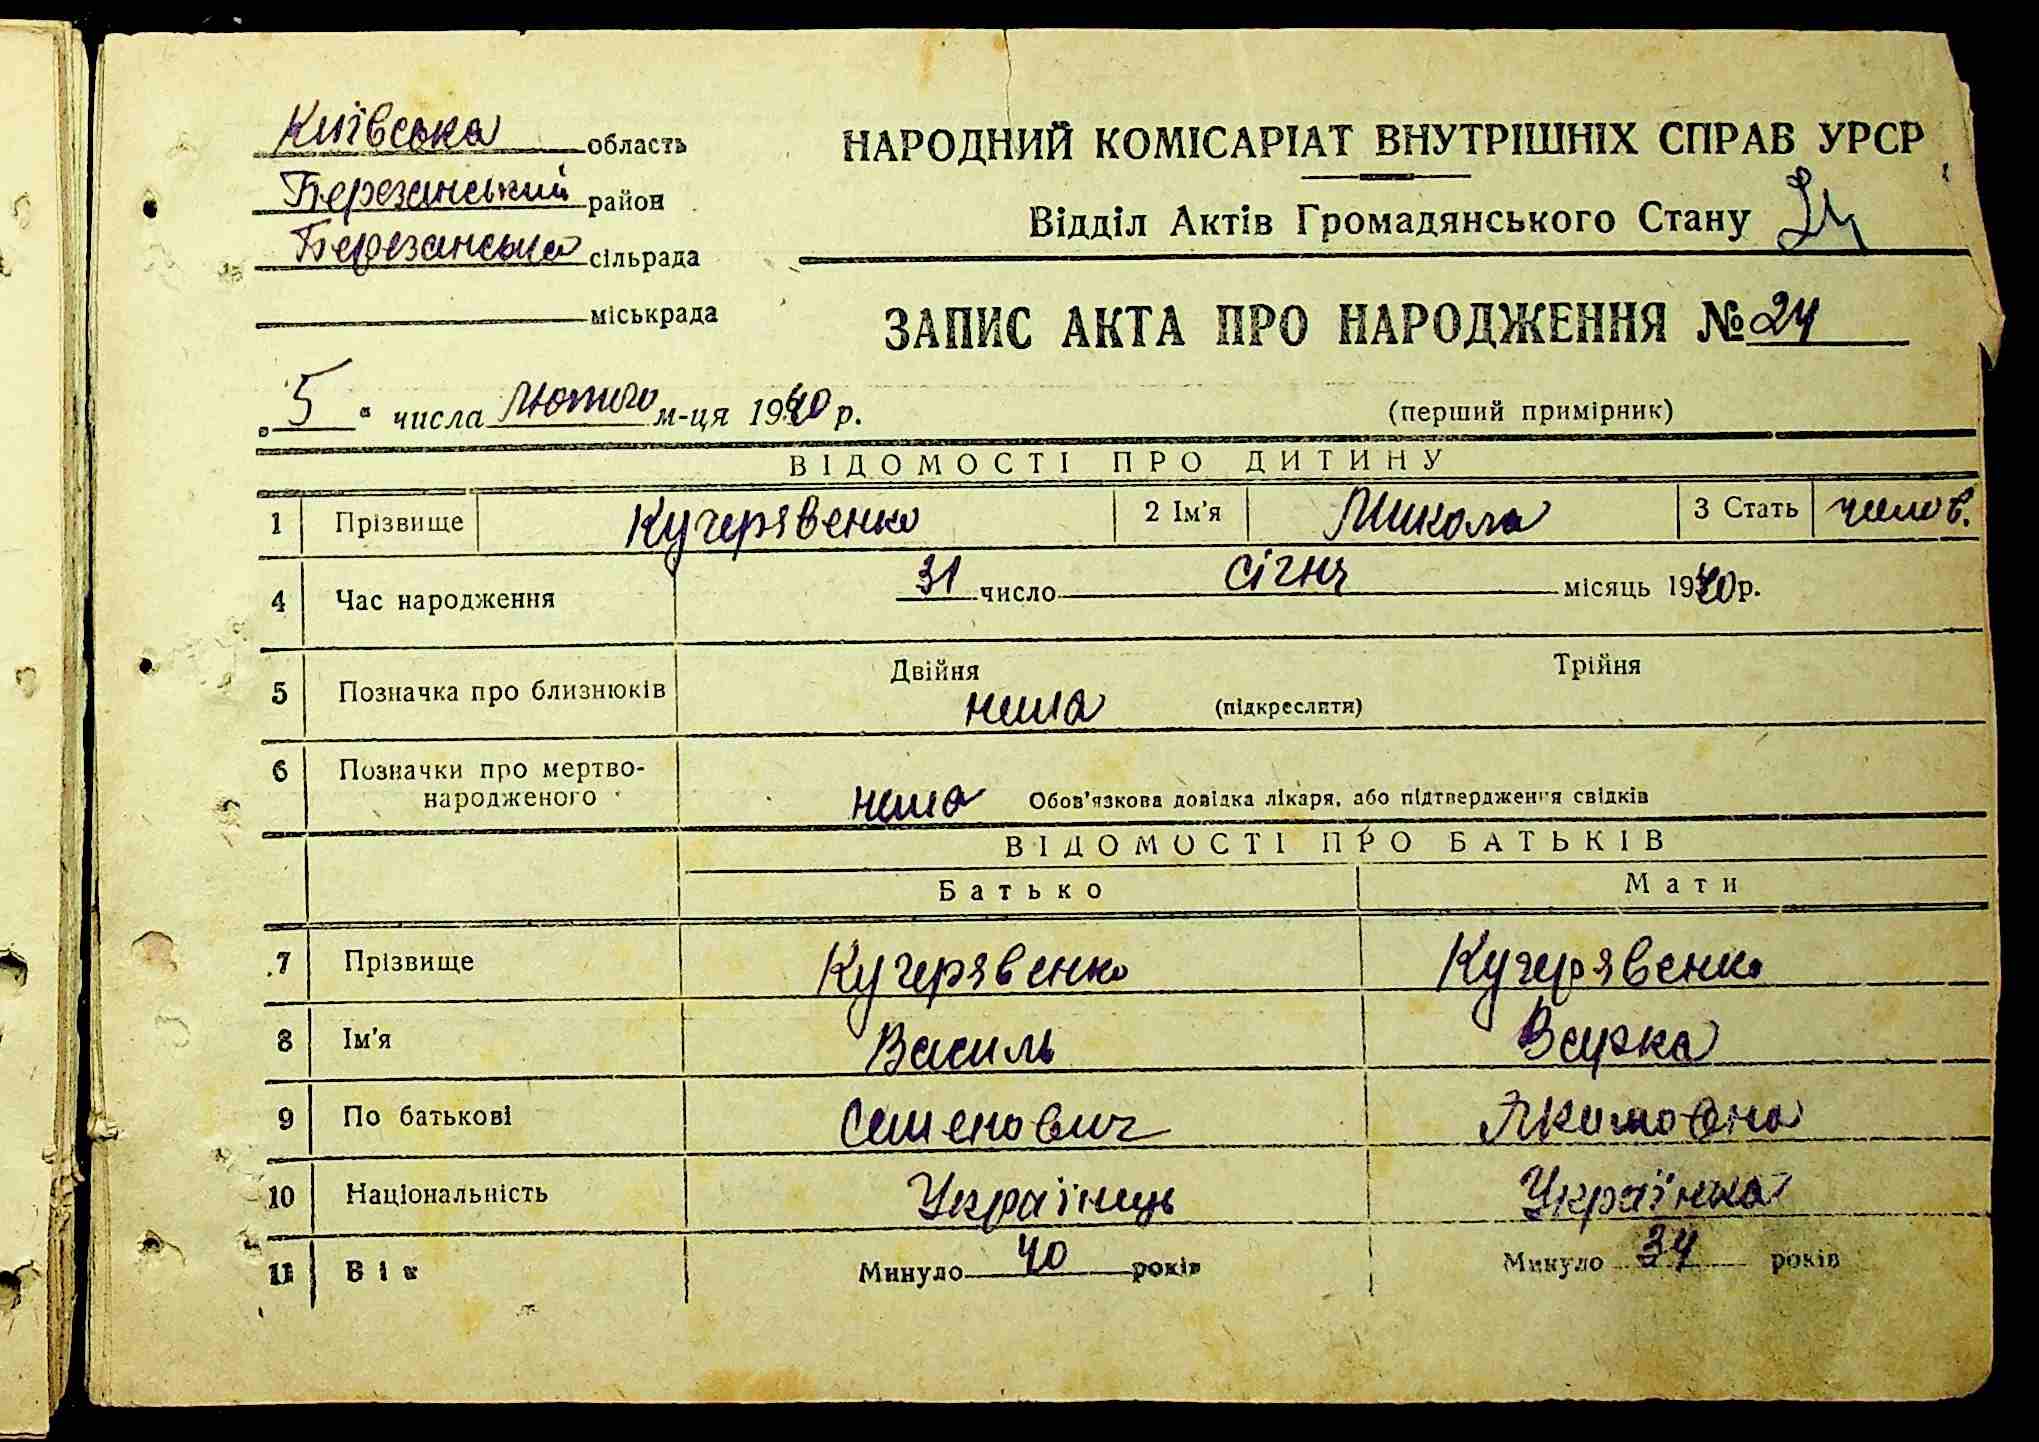 Київська область
Березанський район
Березанська сільрада
міськрада
НАРОДНИЙ КОМІСАРІАТ ВНУТРІШНІХ СПРАВ УРСР
Відділ Актів Громадянського Стану
ЗАПИС АКТА ПРО НАРОДЖЕННЯ № 24
„5“ числа Лютого м-ця 1940 р.
(перший примірник)
ВІДОМОСТІ ПРО ДИТИНУ
1 Прізвище Кучерявенко 2 Ім'я Микола 3 Стать чолов.
4 Час народження 31 число січня місяць 1940 р.
5 Позначка про близнюків Двійня Трійня
нема (підкреслити)
6 Позначки про мертво-
народженого нема Обов'язкова довідка лікаря, або підтвердження свідків
ВІДОМОСТІ ПРО БАТЬКІВ
Батько Мати
7 Прізвище Кучерявенко Кучерявенко
8 Ім'я Василь
9 По батькові Семенович Якимовна
10 Національність Українець Українка
11 Вік Минуло 40 років Минуло 34 років